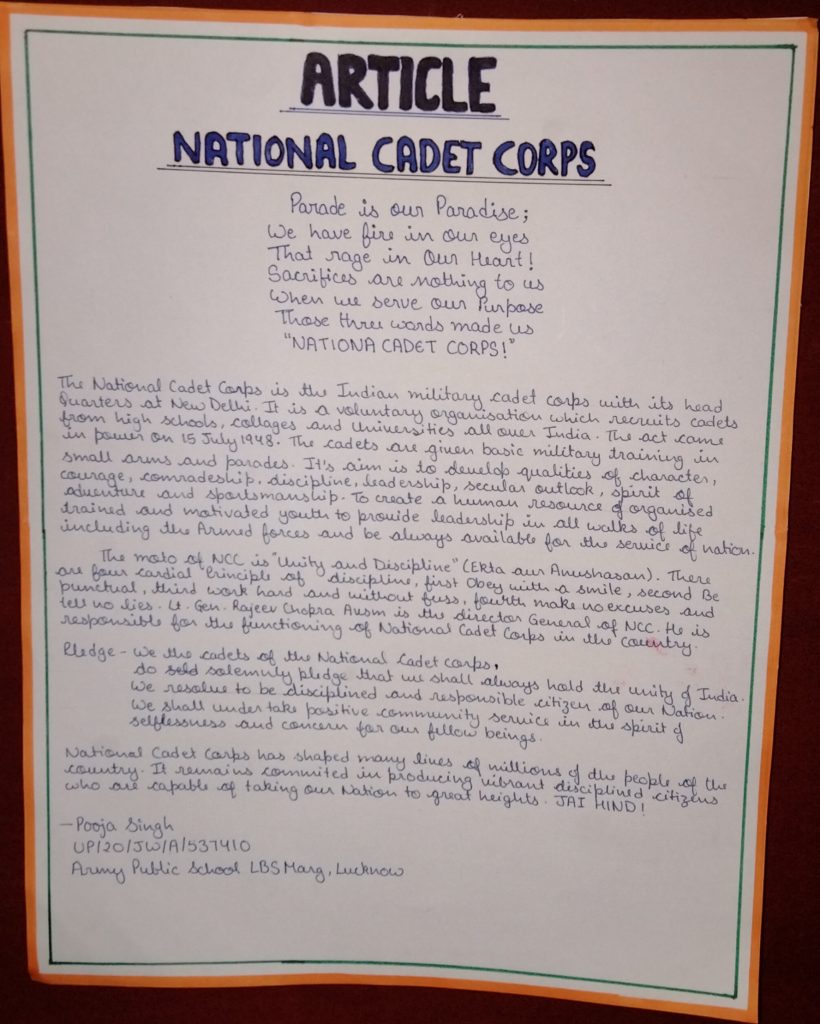 ARTICLE
NATIONAL CADET CORPS
Parade is our Paradise;
We have fire in our eyes
That rage in Our Heart!
Sacrifices are nothing to us
When we serve our Purpose
Those three words made us
"NATIONA CADET CORPS!"
The National Cadet Corps is the Indian military cadet corps with its head
Quarters at New Delhi. It is a voluntary organisation which recruits cadets
from high schools, collages and Universities all over India. The act came
in power on 15 July 1948. The cadets are given basic military training in
small arms and parades. It's aim is to develop qualities of character,
courage, comradeship, discipline, leadership, secular outlook, spirit of
adventure and sportsmanship. To create a human resource of organised
trained and motivated youth to provide leadership in all walks of life
including the Armed forces and be always available for the service of nation.
The moto of NCC is "Unity and Discipline" (Ekta aur Anushasan). There
are four cardial Principle of discipline, first Obey with a smile, second Be
punctual, third work hard and without fuss, fourth make no excuses and
tell no lies. Lt. Gen. Rajeev Chopra Avsm is the director General of NCC. He is
responsible for the functioning of National Cadet Corps in the country.
Pledge - We the cadets of the National Cadet Corps,
do solemnly pledge that we shall always hold the unity of India.
We resolve to be disciplined and responsible citizen of our Nation.
We shall undertake positive community service in the spirit of
selflessness and concern for our fellow beings.
National Cadet Corps has shaped many lives of millions of the people of the
country. It remains commited in producing vibrant disciplined citizens
who are capable of taking our Nation to great heights. JAI HIND!
- Pooja Singh
UP/20/JW/A/537410
Army Public School LBS Marg, Lucknow